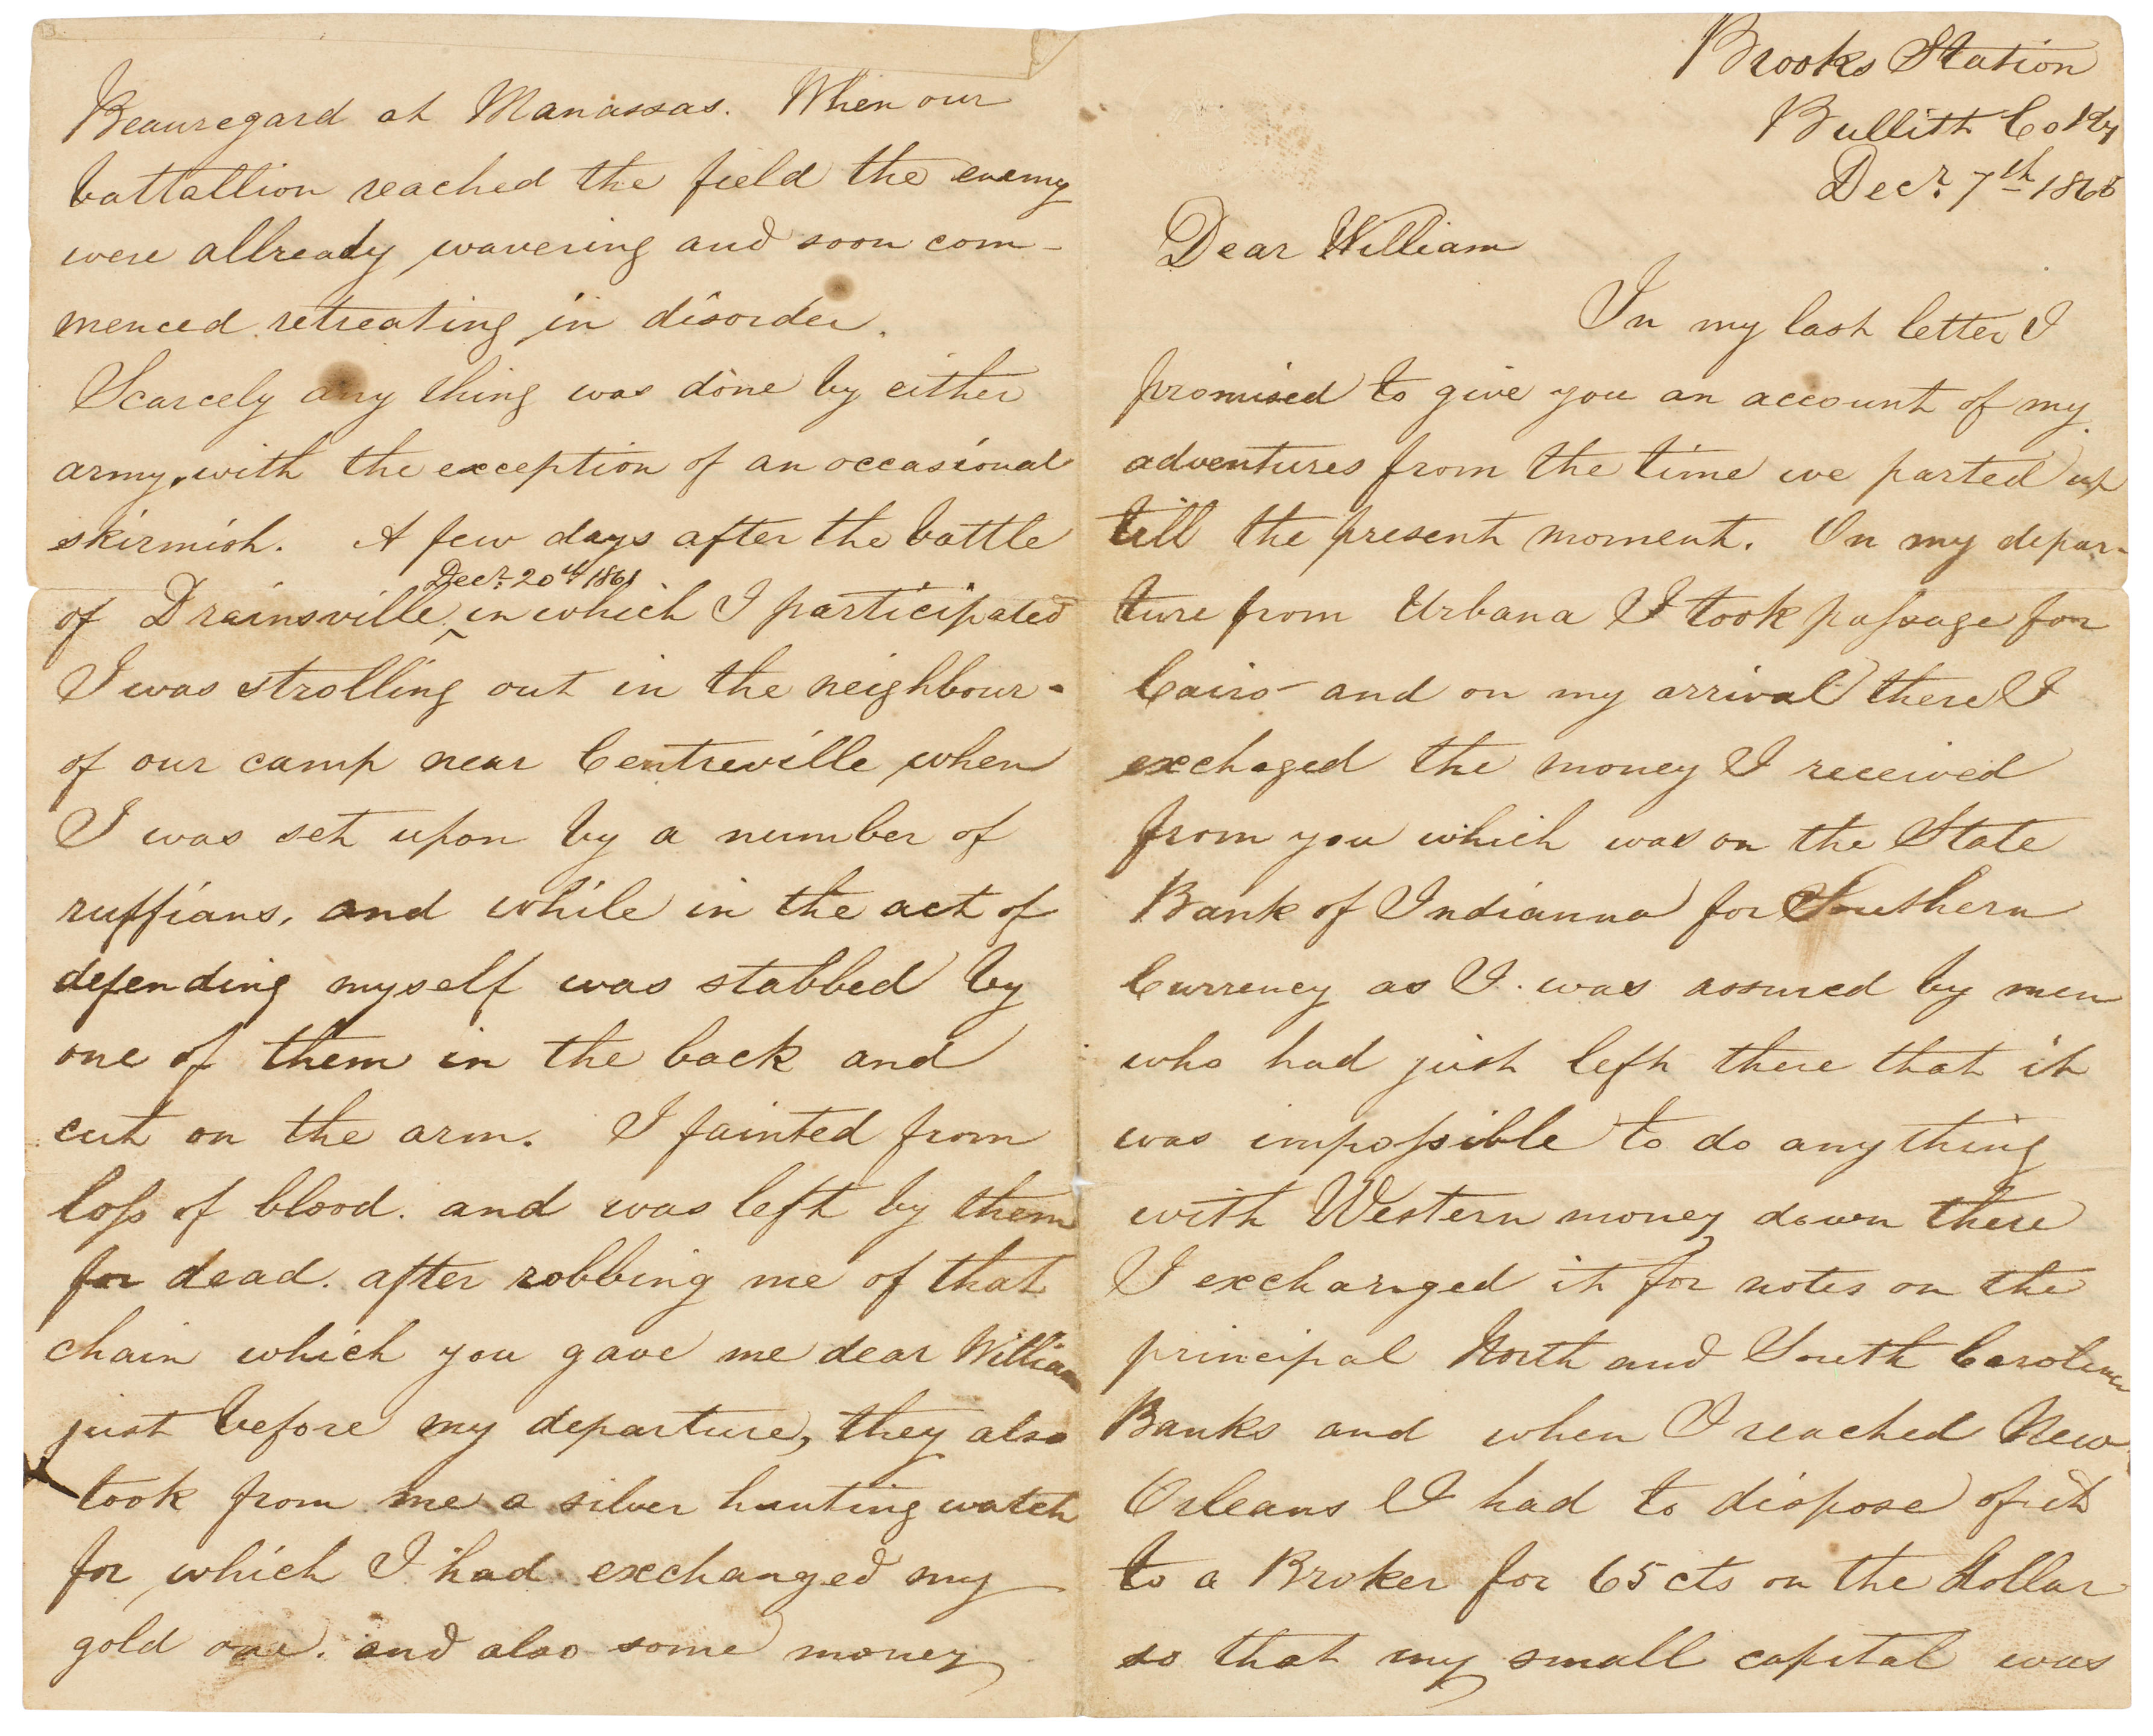 Brooks Station
Bullitt Co Ky
Decr. 7th
Dear William
In my last letter I
promised to give you an account of my
adventures from the time we parted up
till the present moment. On my depar-
ture from Urbana I took passage for
Cairo and on my arrival there I
exchaged the money I received
from you which was on the State
Bank of Indianna for Southern
Currency as I was assured by men
who had just left there that it
was impossible to do any thing
with Western money down there
I exchanged it for notes on the
principal North and South Carolina
Banks and when I reached New
Orleans I had to dispose of it
to a Broker for 65 cts on the Dollar
so that my small capital was
Beauregard at Manassas. When our
battallion reached the field the enemy
were allready wavering and soon com-
menced retreating in disorder.
Scarcely any thing was done by either
army, with the exception of an occasional
skirmish. A few days after the battle
Decr. 20th 1861
of Drainsville ^ in which I participated
I was strolling out in the neighbour-
of our camp near Centreville when
I was set upon by a number of
ruffians, and while in the act of
defending myself was stabbed by
one of them in the back and
cut on the arm. I fainted from
loss of blood. and was left by them
for dead. after robbing me of that
chain which you gave me dear William
just before my departure, they also
took from me a silver hunting watch
for which I had exchanged my
gold one. and also some money